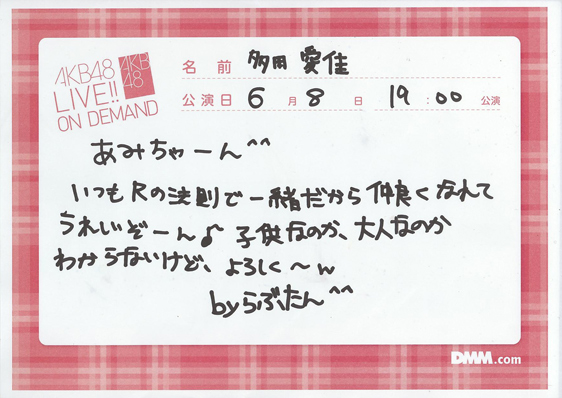 AKB48
LIVE!!
ON DEMAND
AKB
48
名前 多田 愛佳
公演日 6月8日 19:00 公演
あみちゃーん^^
いつもRの法則で一緒だから仲良くなれて
うれいぞーん♪子供なのか、大人なのか
わからないけど、よろしく〜w
byらぶたん^^
DMM.com